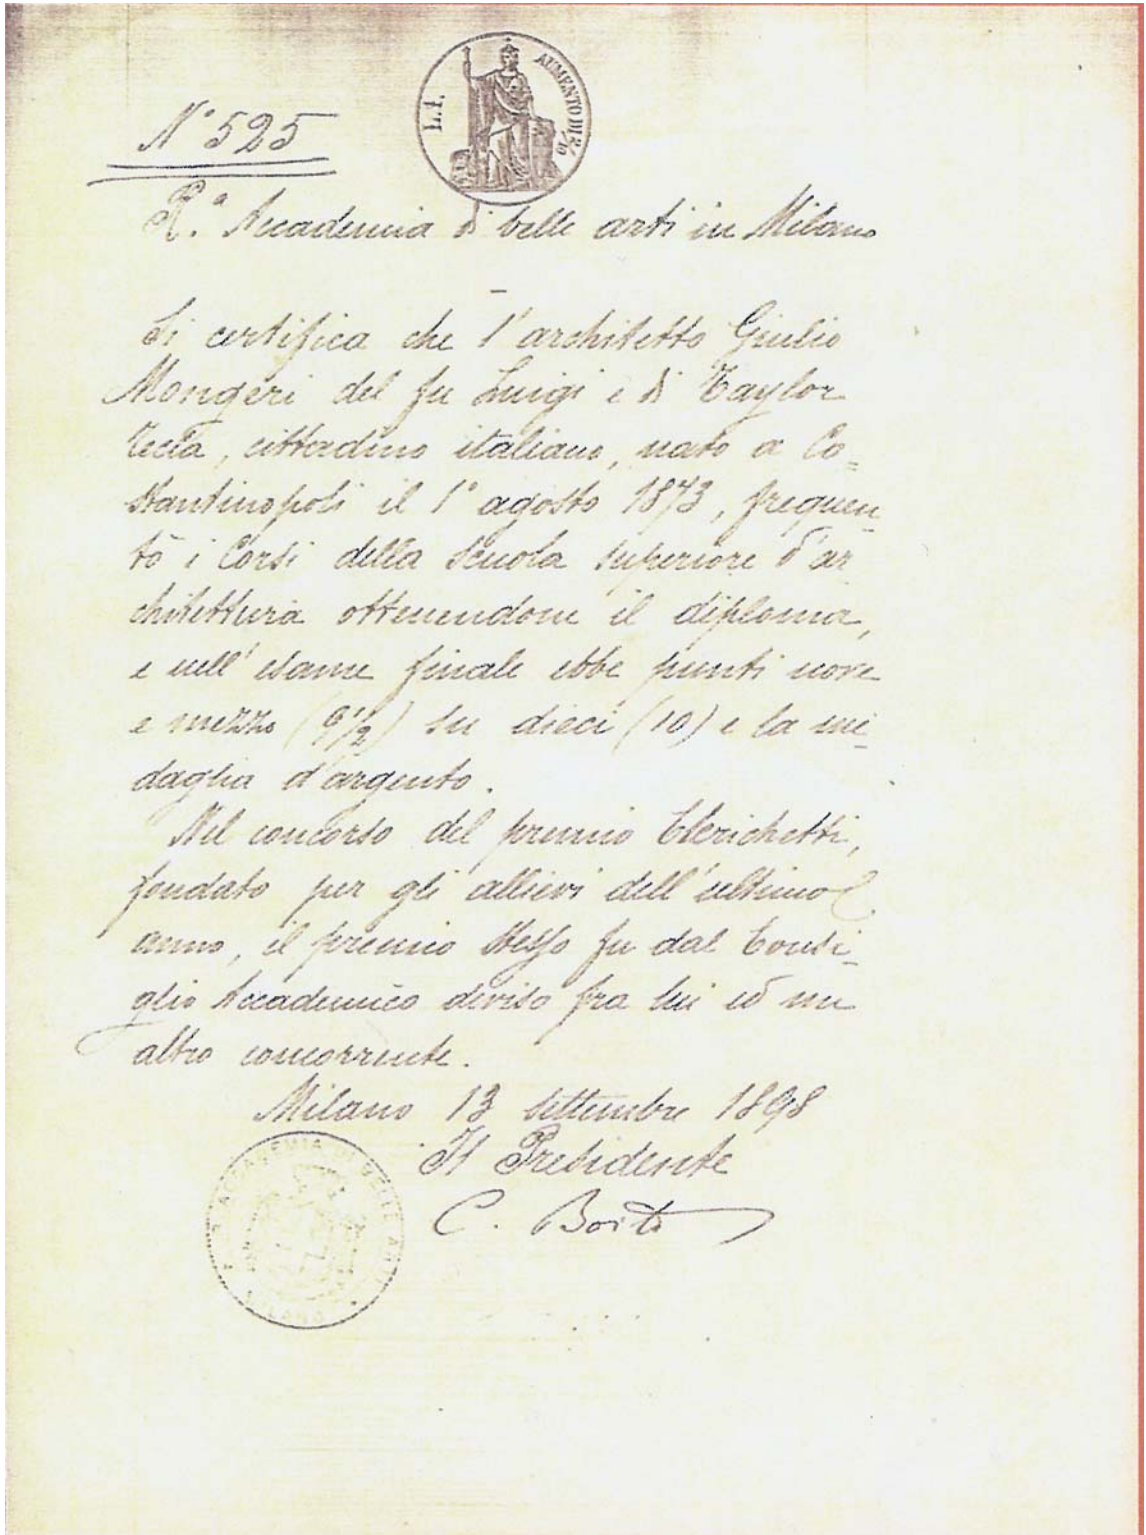 L. 1. AUMENTO DI 2/10
N° 525
R.ª Accademia di belle arti in Milano
Si certifica che l'architetto Giulio
Mongeri del fu Luigi e di Taylor
Tecla, cittadino italiano, nato a Co=
stantinopoli il 1° agosto 1873, frequen=
tò i Corsi della scuola superiore d'ar=
chitettura ottenendone il diploma,
e nell'esame finale ebbe punti nove
e mezzo (9 1/2) su dieci (10) e la me=
daglia d'argento.
Nel concorso del premio Clerichetti,
fondato per gli allievi dell'ultimo
anno, il premio stesso fu dal Consi=
glio Accademico diviso fra lui ed un
altro concorrente.
Milano 13 settembre 1898
Il Presidente
C. Boito
R. ACCADEMIA DI BELLE ARTI
MILANO